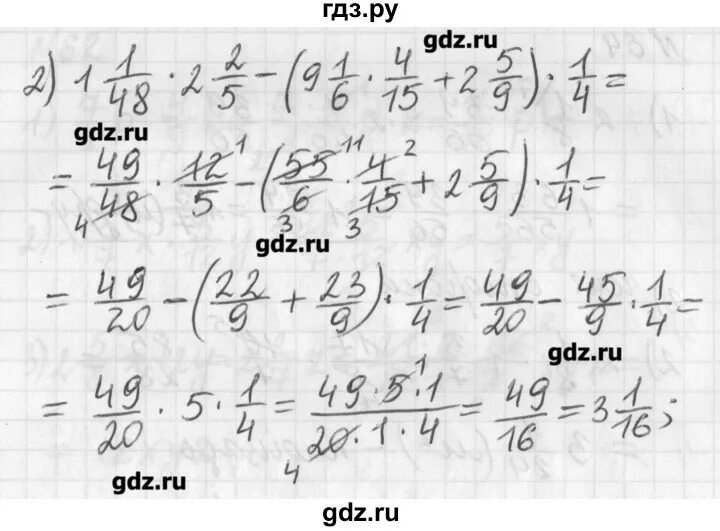 гдз.ру
gdz.ru
2) 1 1/48 · 2 2/5 − (9 1/6 · 4/15 + 2 5/9) · 1/4 =
gdz.ru
= 49/48 · 12/5 − (55/6 · 4/15 + 2 5/9) · 1/4 =
4 1 3 11 3 2
gdz.ru
= 49/20 − (22/9 + 23/9) · 1/4 = 49/20 − 45/9 · 1/4 =
gdz.ru
= 49/20 · 5 · 1/4 = 49·5·1/20·1·4 = 49/16 = 3 1/16;
1 4
gdz.ru
gdz.ru